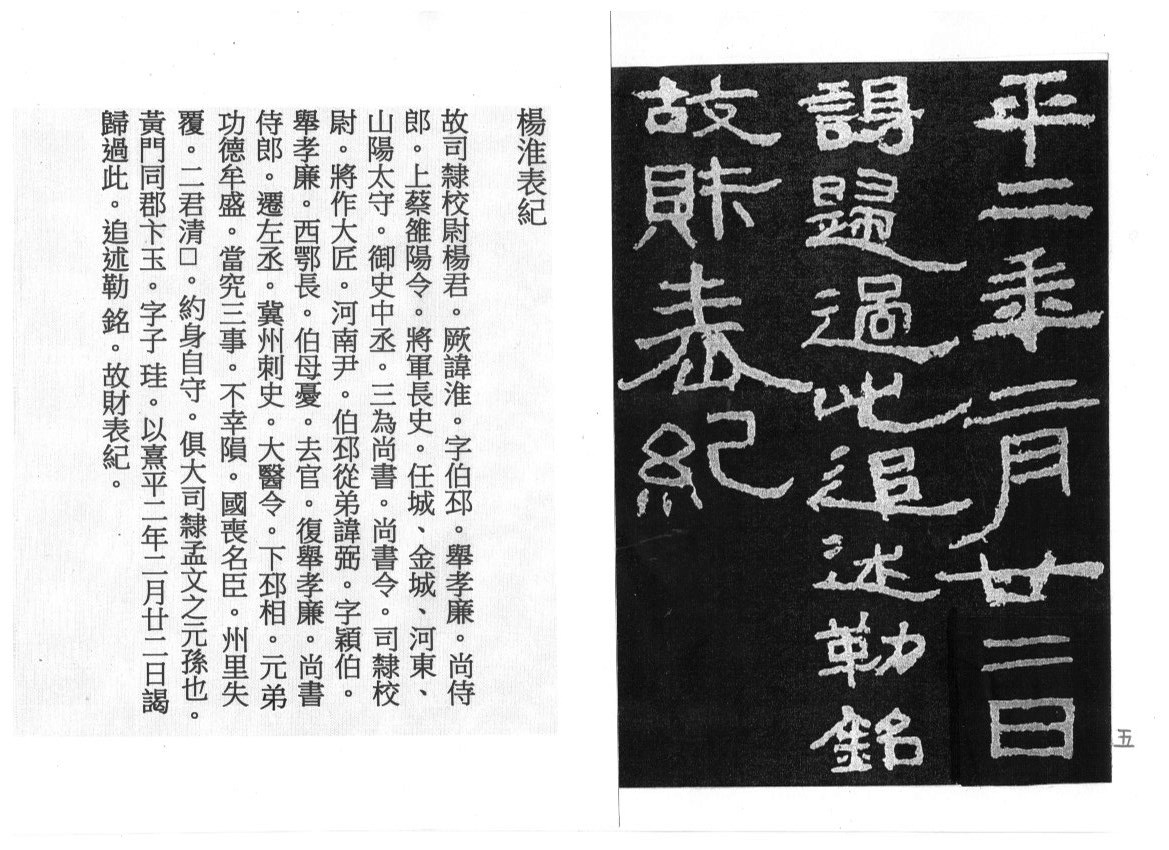 平二年二月廿二日
謁歸過此追述勒銘
故財表紀
五
楊淮表紀
故司隸校尉楊君。厥諱淮。字伯邳。舉孝廉。尚侍
郎。上蔡雒陽令。將軍長史。任城、金城、河東、
山陽太守。御史中丞。三為尚書。尚書令。司隸校
尉。將作大匠。河南尹。伯邳從弟諱弼。字穎伯。
舉孝廉。西鄂長。伯母憂。去官。復舉孝廉。尚書
侍郎。遷左丞。冀州刺史。大醫令。下邳相。元弟
功德牟盛。當究三事。不幸隕。國喪名臣。州里失
覆。二君清□。約身自守。俱大司隸孟文之元孫也。
黃門同郡卞玉。字子珪。以熹平二年二月廿二日謁
歸過此。追述勒銘。故財表紀。